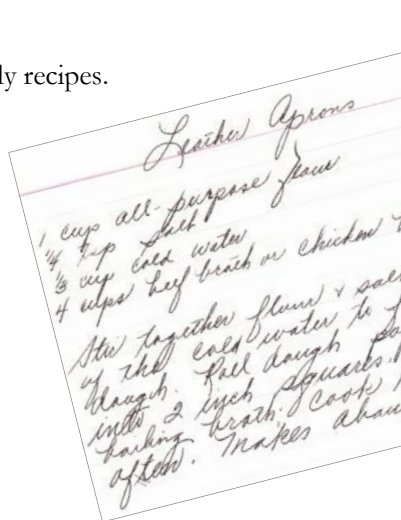 ly recipes.
Leather Aprons
1 cup all-purpose flour
1/4 tsp salt
1/3 cup cold water
4 cups beef broth or chicken
Stir together flour & sal
of the cold water to f
dough. Roll dough
into 2 inch squares.
boiling broth. Cook
often. Makes abou